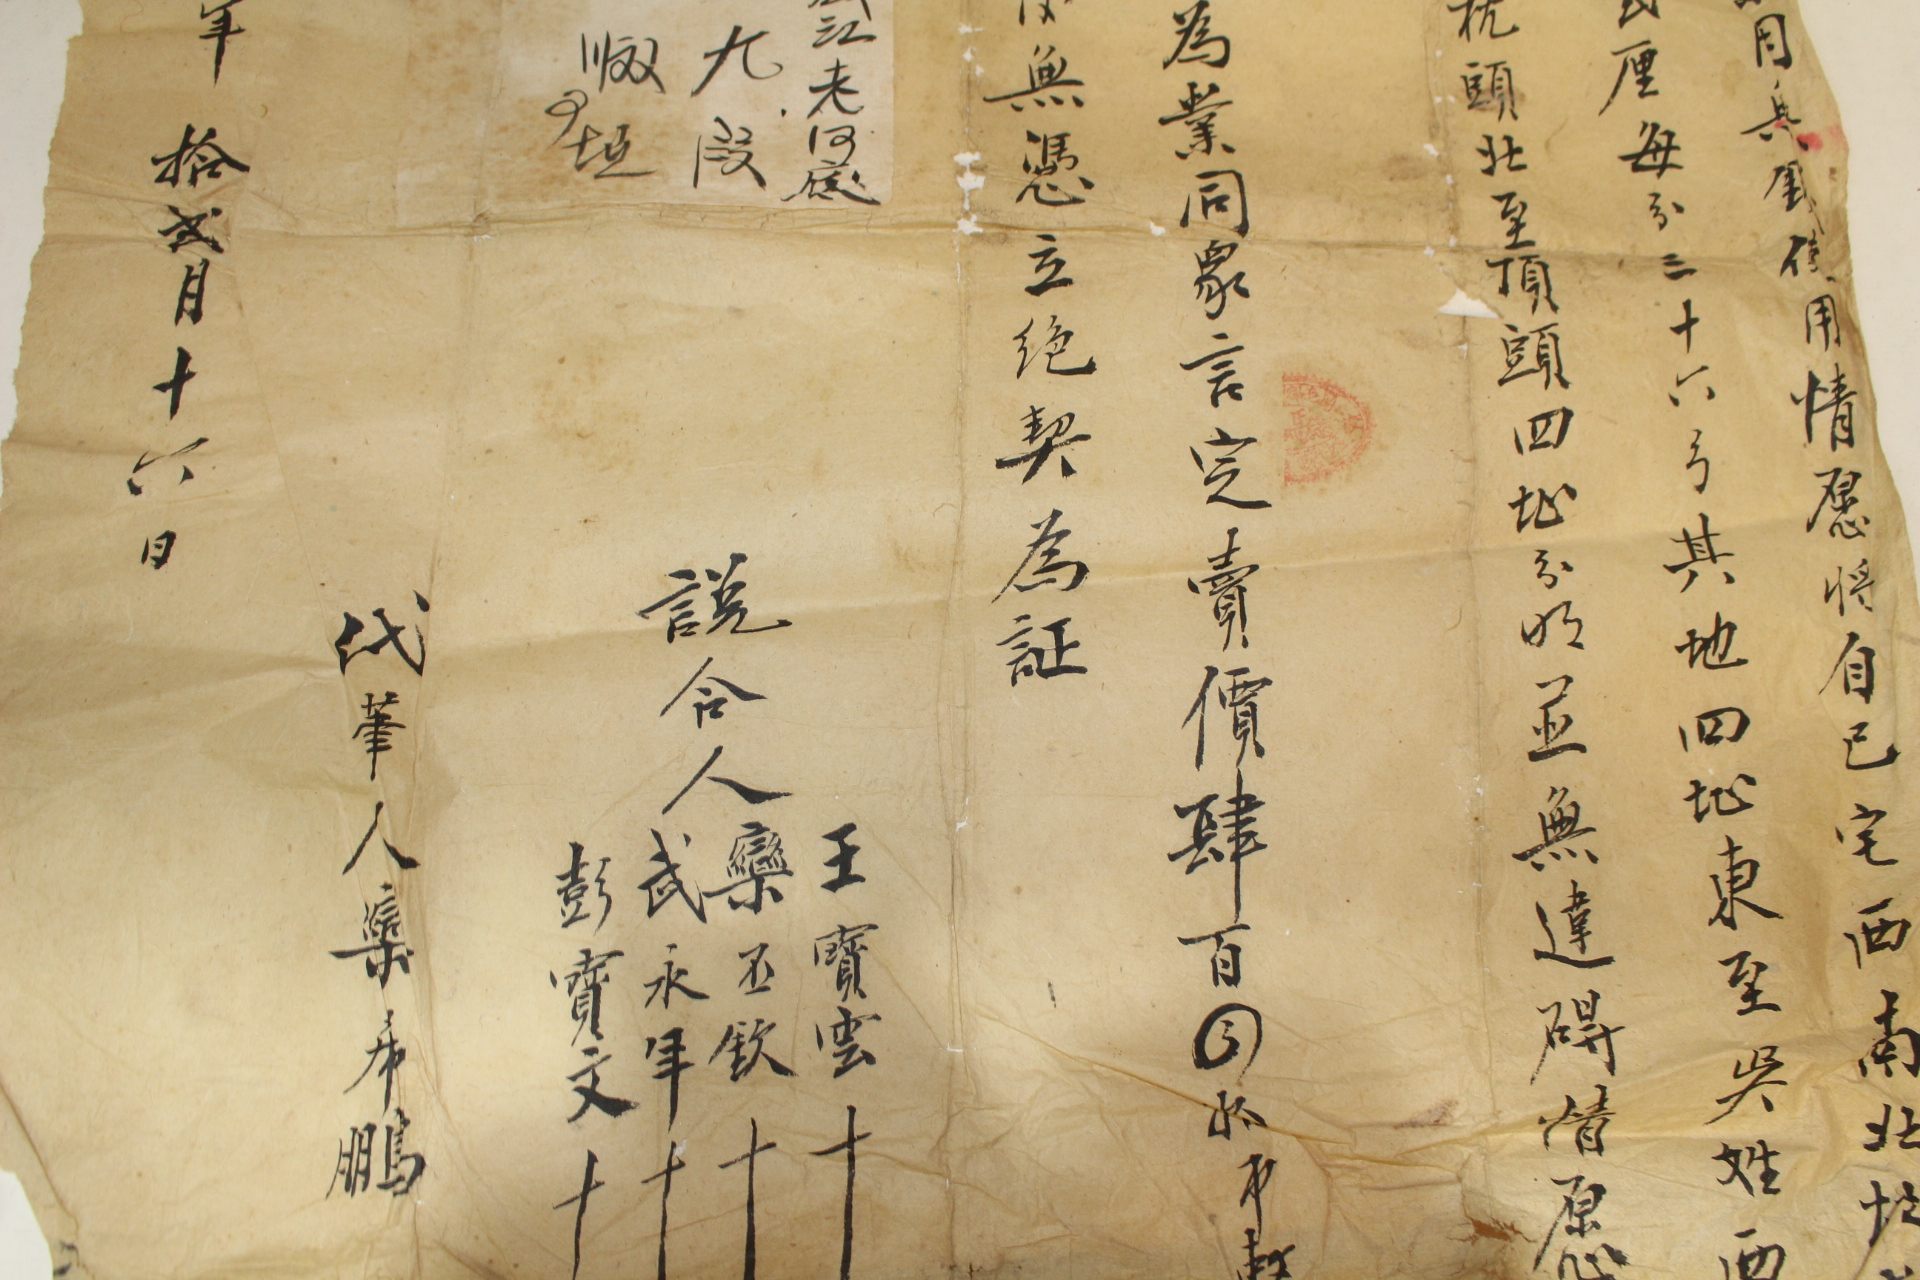 用具銀錢使用情愿将自己宅西南北坵
厘每分三十六弓其地四址東至吳姓西
枕頭北至頂頭四址分明並無違碍情愿
為業同眾言定賣價肆百圓
無憑立绝契為証
江老河底
九段
順
垣
說合人
王寶雲十
欒丕欽十
武永年十
彭寳文十
代筆人欒希鵬
年拾弍月十六日